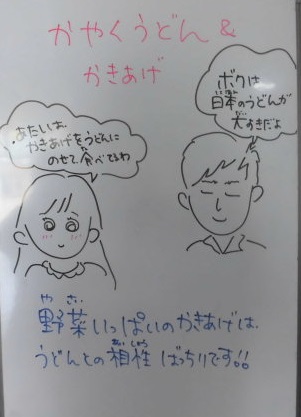 かやくうどん &
かきあげ
ボクは
日本のうどんが
大すきだよ
あたしは、
かきあげをうどんに
のせて、食べてるわ
や さい
野菜いっぱいのかきあげは、
あい しょう
うどんとの相性ばっちりです!!